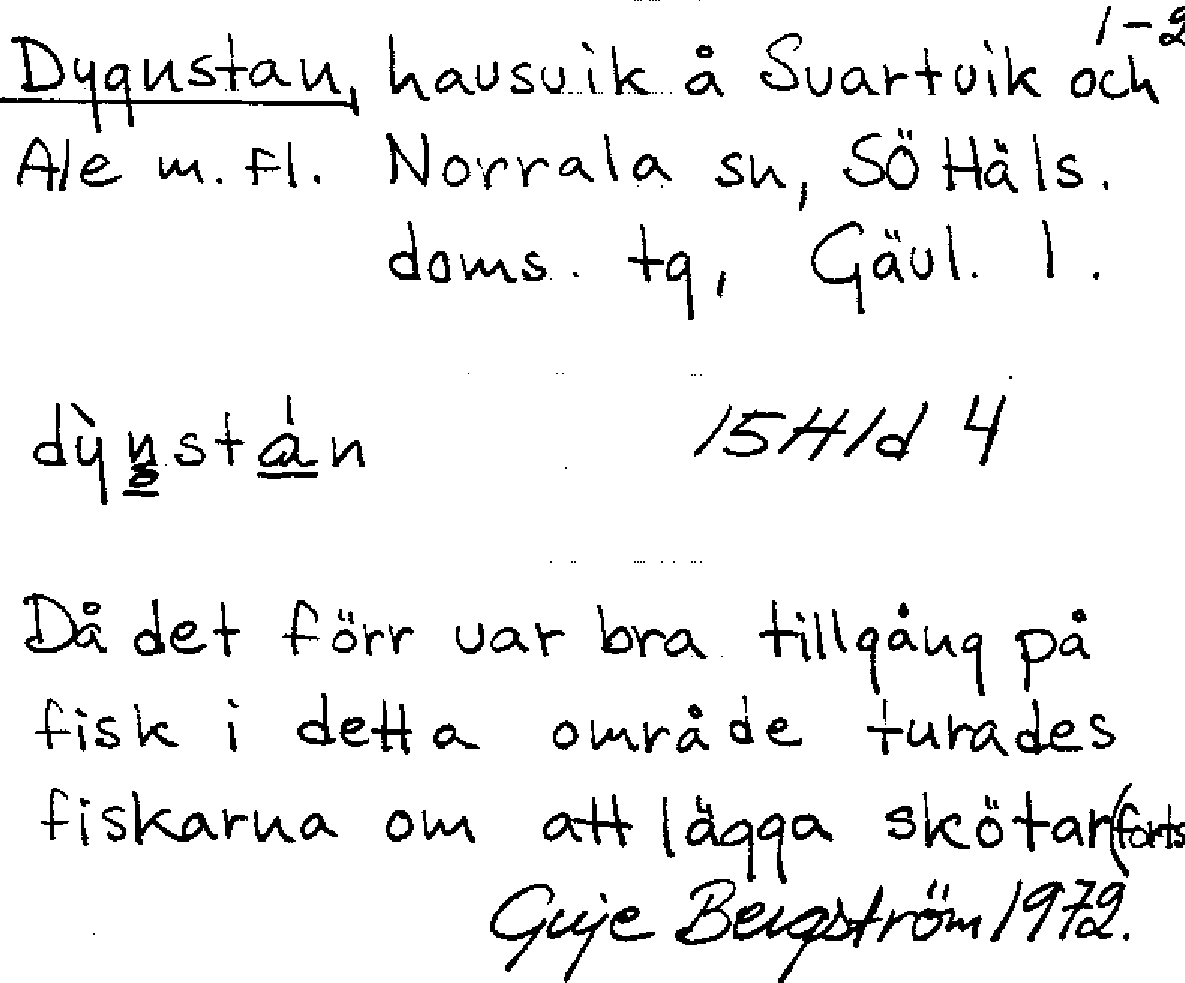 1-2
Dygnstan, havsvik å Svartvik och
Ale m. fl. Norrala sn, SÖ Häls.
doms. tg, Gävl. l.
dỳn̥stán 15H1d 4
Då det förr var bra tillgång på
fisk i detta område turades
fiskarna om att lägga skötar (forts
Guje Bergström 1972.